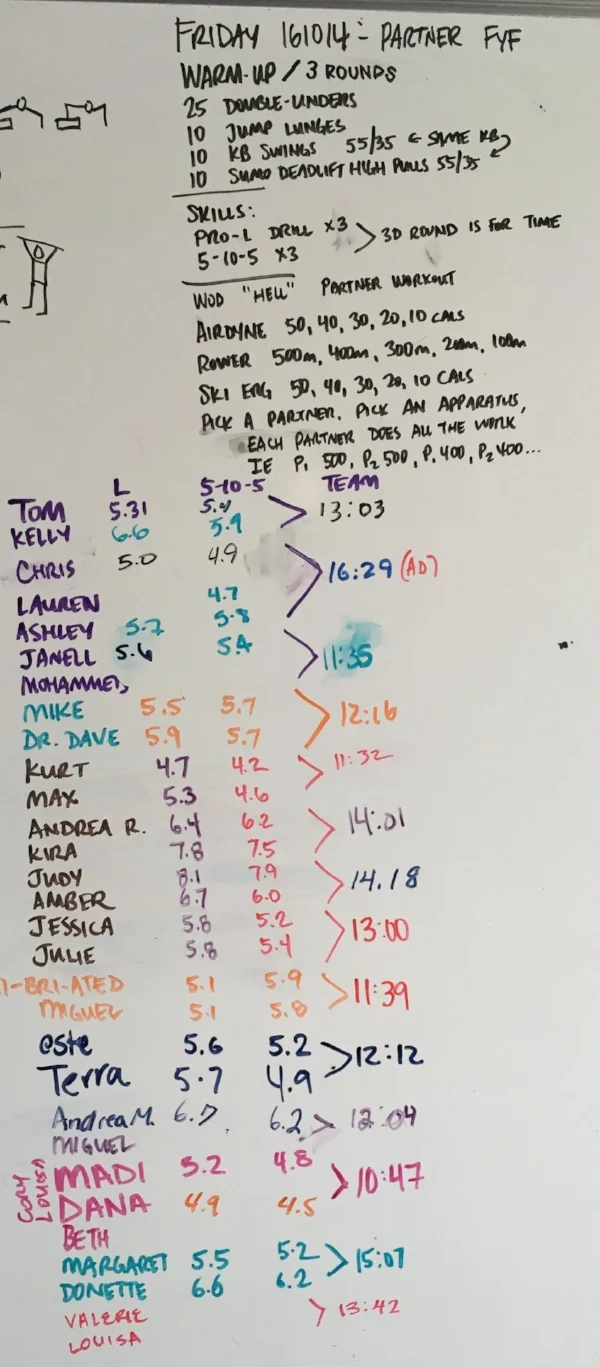 FRIDAY 161014 - PARTNER FYF
WARM-UP / 3 ROUNDS
25 DOUBLE-UNDERS
10 JUMP LUNGES
10 KB SWINGS 55/35 ← SAME KB
10 SUMO DEADLIFT HIGH PULLS 55/35
SKILLS:
PRO-L DRILL X3 > 3D ROUND IS FOR TIME
5-10-5 X3
WOD "HELL" PARTNER WORKOUT
AIRDYNE 50, 40, 30, 20, 10 CALS
ROWER 500m, 400m, 300m, 200m, 100m
SKI ERG 50, 40, 30, 20, 10 CALS
PICK A PARTNER. PICK AN APPARATUS,
EACH PARTNER DOES ALL THE WORK
IE P1 500, P2 500, P1 400, P2 400...
L 5-10-5 TEAM
TOM 5.31 > 13:03
KELLY 6.6 5.9
CHRIS 5.0 4.9 > 16:29 (AD)
LAUREN 4.7
ASHLEY 5.7 5.8
JANELL 5.4 > 11:35
MOHAMMED
MIKE 5.5 5.7 > 12:16
DR. DAVE 5.9 5.7
KURT 4.7 4.2 > 11:32
MAX 5.3 4.6
ANDREA R. 6.4 6.2 > 14:01
KIRA 7.8 7.5
JUDY 8.1 7.9 > 14.18
AMBER 6.7 6.0
JESSICA 5.8 5.2 > 13:00
JULIE 5.8 5.4
I-BRI-ATED 5.1 5.9 > 11:39
MIGUEL 5.1 5.8
este 5.6 5.2 > 12:12
Terra 5.7 4.9
Andrea M. 6.2 > 12:04
MIGUEL
CORY LOUISA
MADI 5.2 4.8 > 10:47
DANA 4.9 4.5
BETH
MARGARET 5.5 5.2 > 15:07
DONETTE 6.6 6.2
VALERIE > 13:42
LOUISA